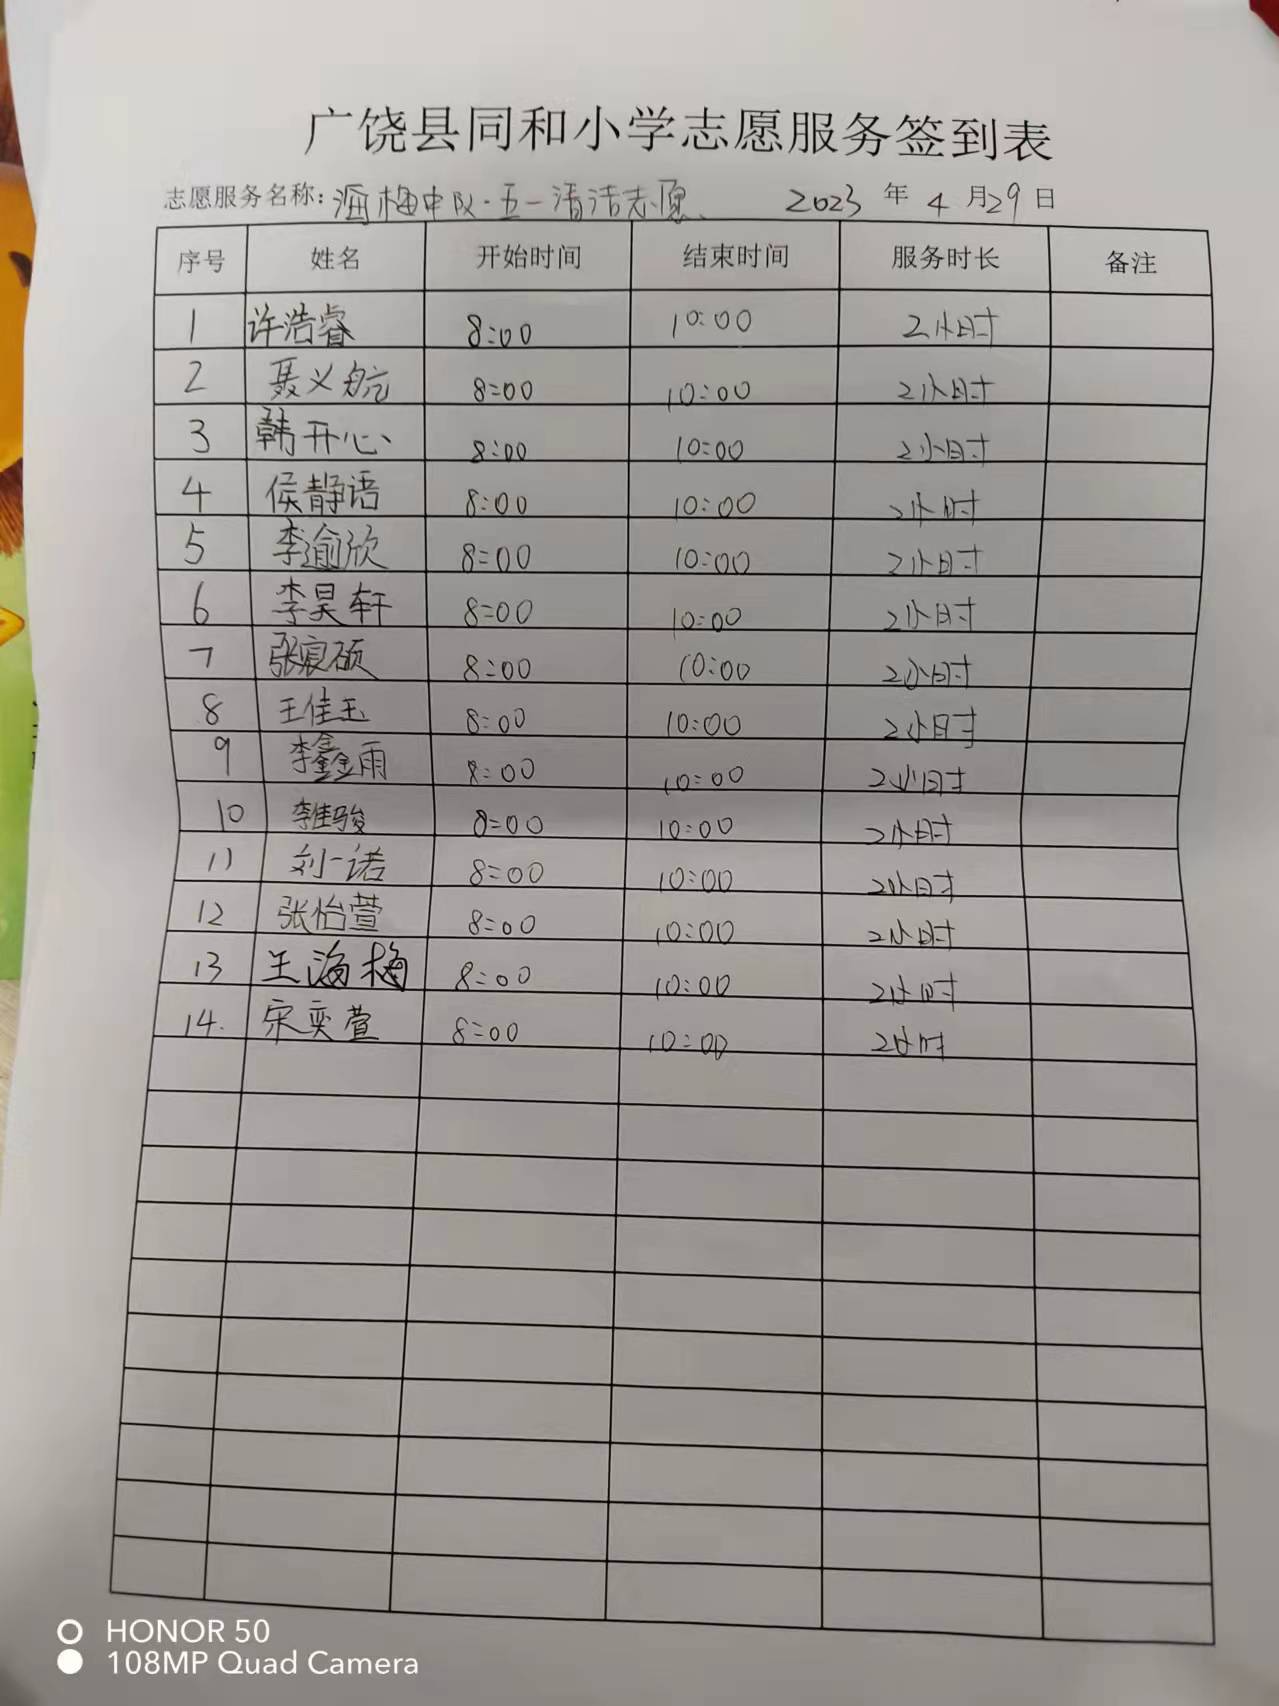 广饶县同和小学志愿服务签到表
志愿服务名称:海梅中队·五一清洁志愿 2023 年 4 月 29 日
序号 姓名 开始时间 结束时间 服务时长 备注
1 许浩睿 8:00 10:00 2小时
2 聂义航 8:00 10:00 2小时
3 韩开心 8:00 10:00 2小时
4 侯静语 8:00 10:00 2小时
5 李逾欣 8:00 10:00 2小时
6 李昊轩 8:00 10:00 2小时
7 张宸硕 8:00 10:00 2小时
8 王佳玉 8:00 10:00 2小时
9 李鑫雨 8:00 10:00 2小时
10 李佳骏 8:00 10:00 2小时
11 刘一诺 8:00 10:00 2小时
12 张怡萱 8:00 10:00 2小时
13 王海梅 8:00 10:00 2小时
14. 宋奕萱 8:00 10:00 2小时
HONOR 50
108MP Quad Camera